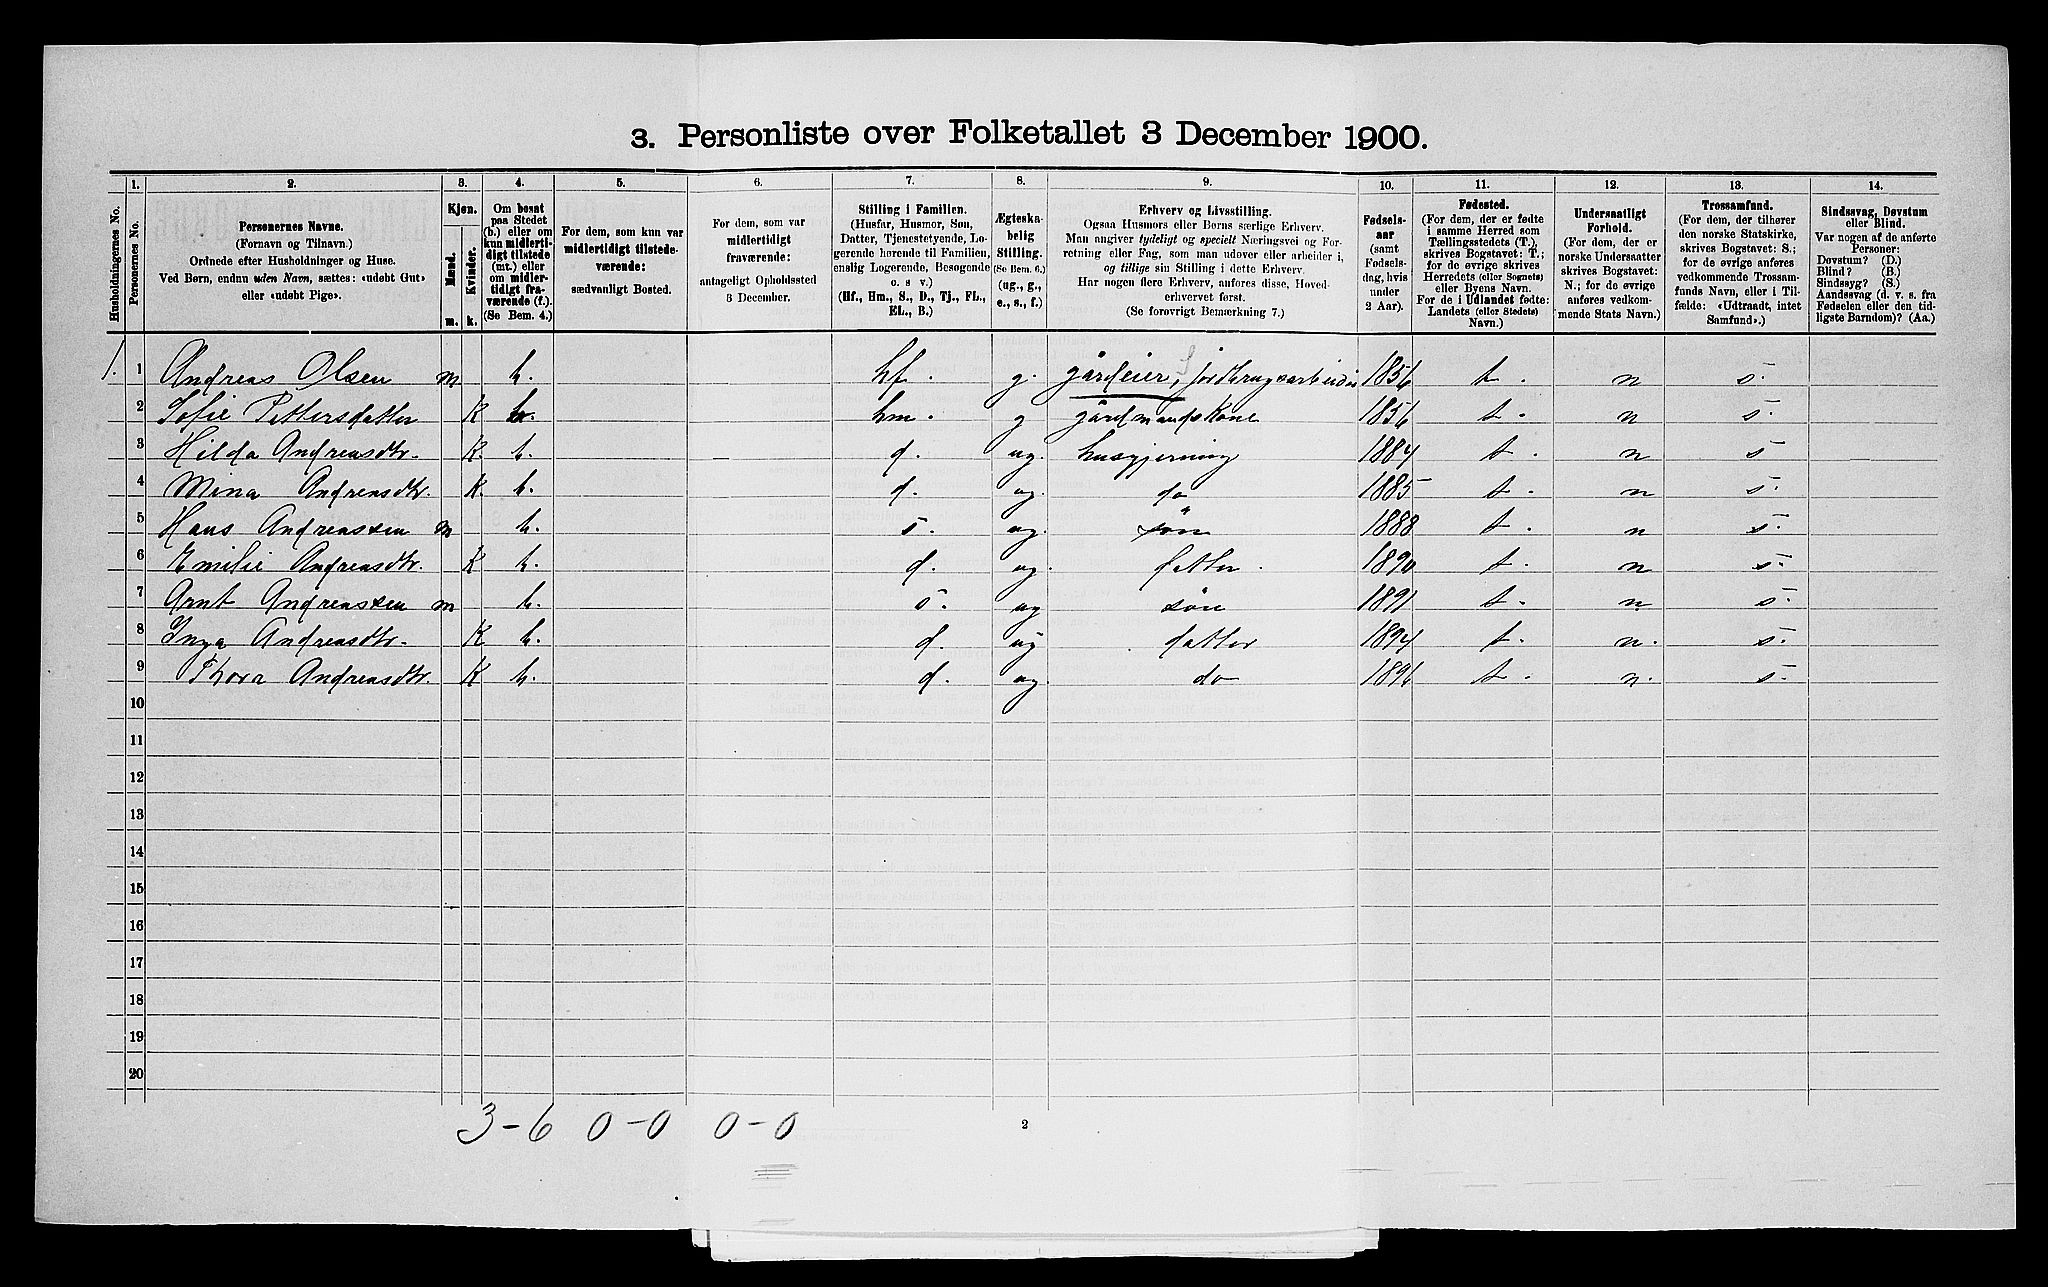 3. Personliste over Folketallet 3 December 1900.
1. 2. 3. 4. 5. 6. 7. 8. 9. 10. 11. 12. 13. 14.
Husholdningernes No.
Personernes No.
Personernes Navne.
(Fornavn og Tilnavn.)
Ordnede efter Husholdninger og Huse.
Ved Børn, endnu uden Navn, sættes: «udøbt Gut»
eller «udøbt Pige».
Kjøn.
Mænd.
Kvinder.
m. k.
Om bosat
paa Stedet
(b.) eller om
kun midlerti-
digt tilstede
(mt.) eller
om midler-
tidigt fra-
værende (f.).
(Se Bem. 4.)
For dem, som kun var
midlertidigt tilstede-
værende:
sædvanligt Bosted.
For dem, som var
midlertidigt
fraværende:
antageligt Opholdssted
3 December.
Stilling i Familien.
(Husfar, Husmor, Søn,
Datter, Tjenestetyende, Lo-
gerende hørende til Familien,
enslig Logerende, Besøgende
o. s v.)
(Hf., Hm., S., D., Tj., FL.,
EL., B.)
Ægteska-
belig
Stilling.
(Se Bem. 6.)
(ug., g.,
e., s., f.)
Erhverv og Livsstilling.
Ogsaa Husmors eller Børns særlige Erhverv.
Man angiver tydeligt og specielt Næringsvei og For-
retning eller Fag, som man udøver eller arbeider i,
og tillige sin Stilling i dette Erhverv.
Har nogen flere Erhverv, anføres disse, Hoved-
erhvervet først.
(Se forøvrigt Bemærkning 7.)
Fødsels-
aar
(samt
Fødsels-
dag, hvis
under
2 Aar).
Fødested.
(For dem, der er fødte
i samme Herred som
Tællingsstedets (T.),
skrives Bogstavet: T.;
for de øvrige skrives
Herredets (eller Sognets)
eller Byens Navn.
For de i Udlandet fødte:
Landets (eller Stedets)
Navn.)
Undersaatligt
Forhold.
(For dem, der er
norske Undersaatter
skrives Bogstavet:
N.; for de øvrige
anføres vedkom-
mende Stats Navn.)
Trossamfund.
(For dem, der tilhører
den norske Statskirke,
skrives Bogstavet: S.;
for de øvrige anføres
vedkommende Trossam-
funds Navn, eller i Til-
fælde: «Udtraadt, intet
Samfund».)
Sindssvag, Døvstum
eller Blind.
Var nogen af de anførte
Personer:
Døvstum? (D.)
Blind? (B.)
Sindssyg? (S.)
Aandssvag (d. v. s. fra
Fødselen eller den tid-
ligste Barndom)? (Aa.)
1. 1 Andreas Olsen m b. hf. g. gårdeier, jordbrugsarbeider 1856 t. n s.
2 Sofie Pettersdatter K b. hm. g gårdmandskone 1856 t. n s.
3 Hilda Andreasdtr. K. b. d. ug. husgjerning 1884 t. n s
4 Mina Andreasdtr. K. b. d. ug. do 1885 t. n s.
5 Hans Andreassen m b. s. ug. søn 1888 t. n s.
6 Emilie Andreasdtr. K b. d. ug. datter. 1890 t. n s.
7 Arnt Andreassen m b. s. ug søn 1891 t. n s.
8 Inga Andreasdtr. K b. d. ug datter 1894 t. n. s.
9 Thora Andreasdtr. K b. d. ug. do 1896 t. n. s.
10
11
12
13
14
15
16
17
18
19
20
3-6 0-0 0-0
2